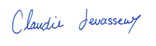 Claudie Levasseur